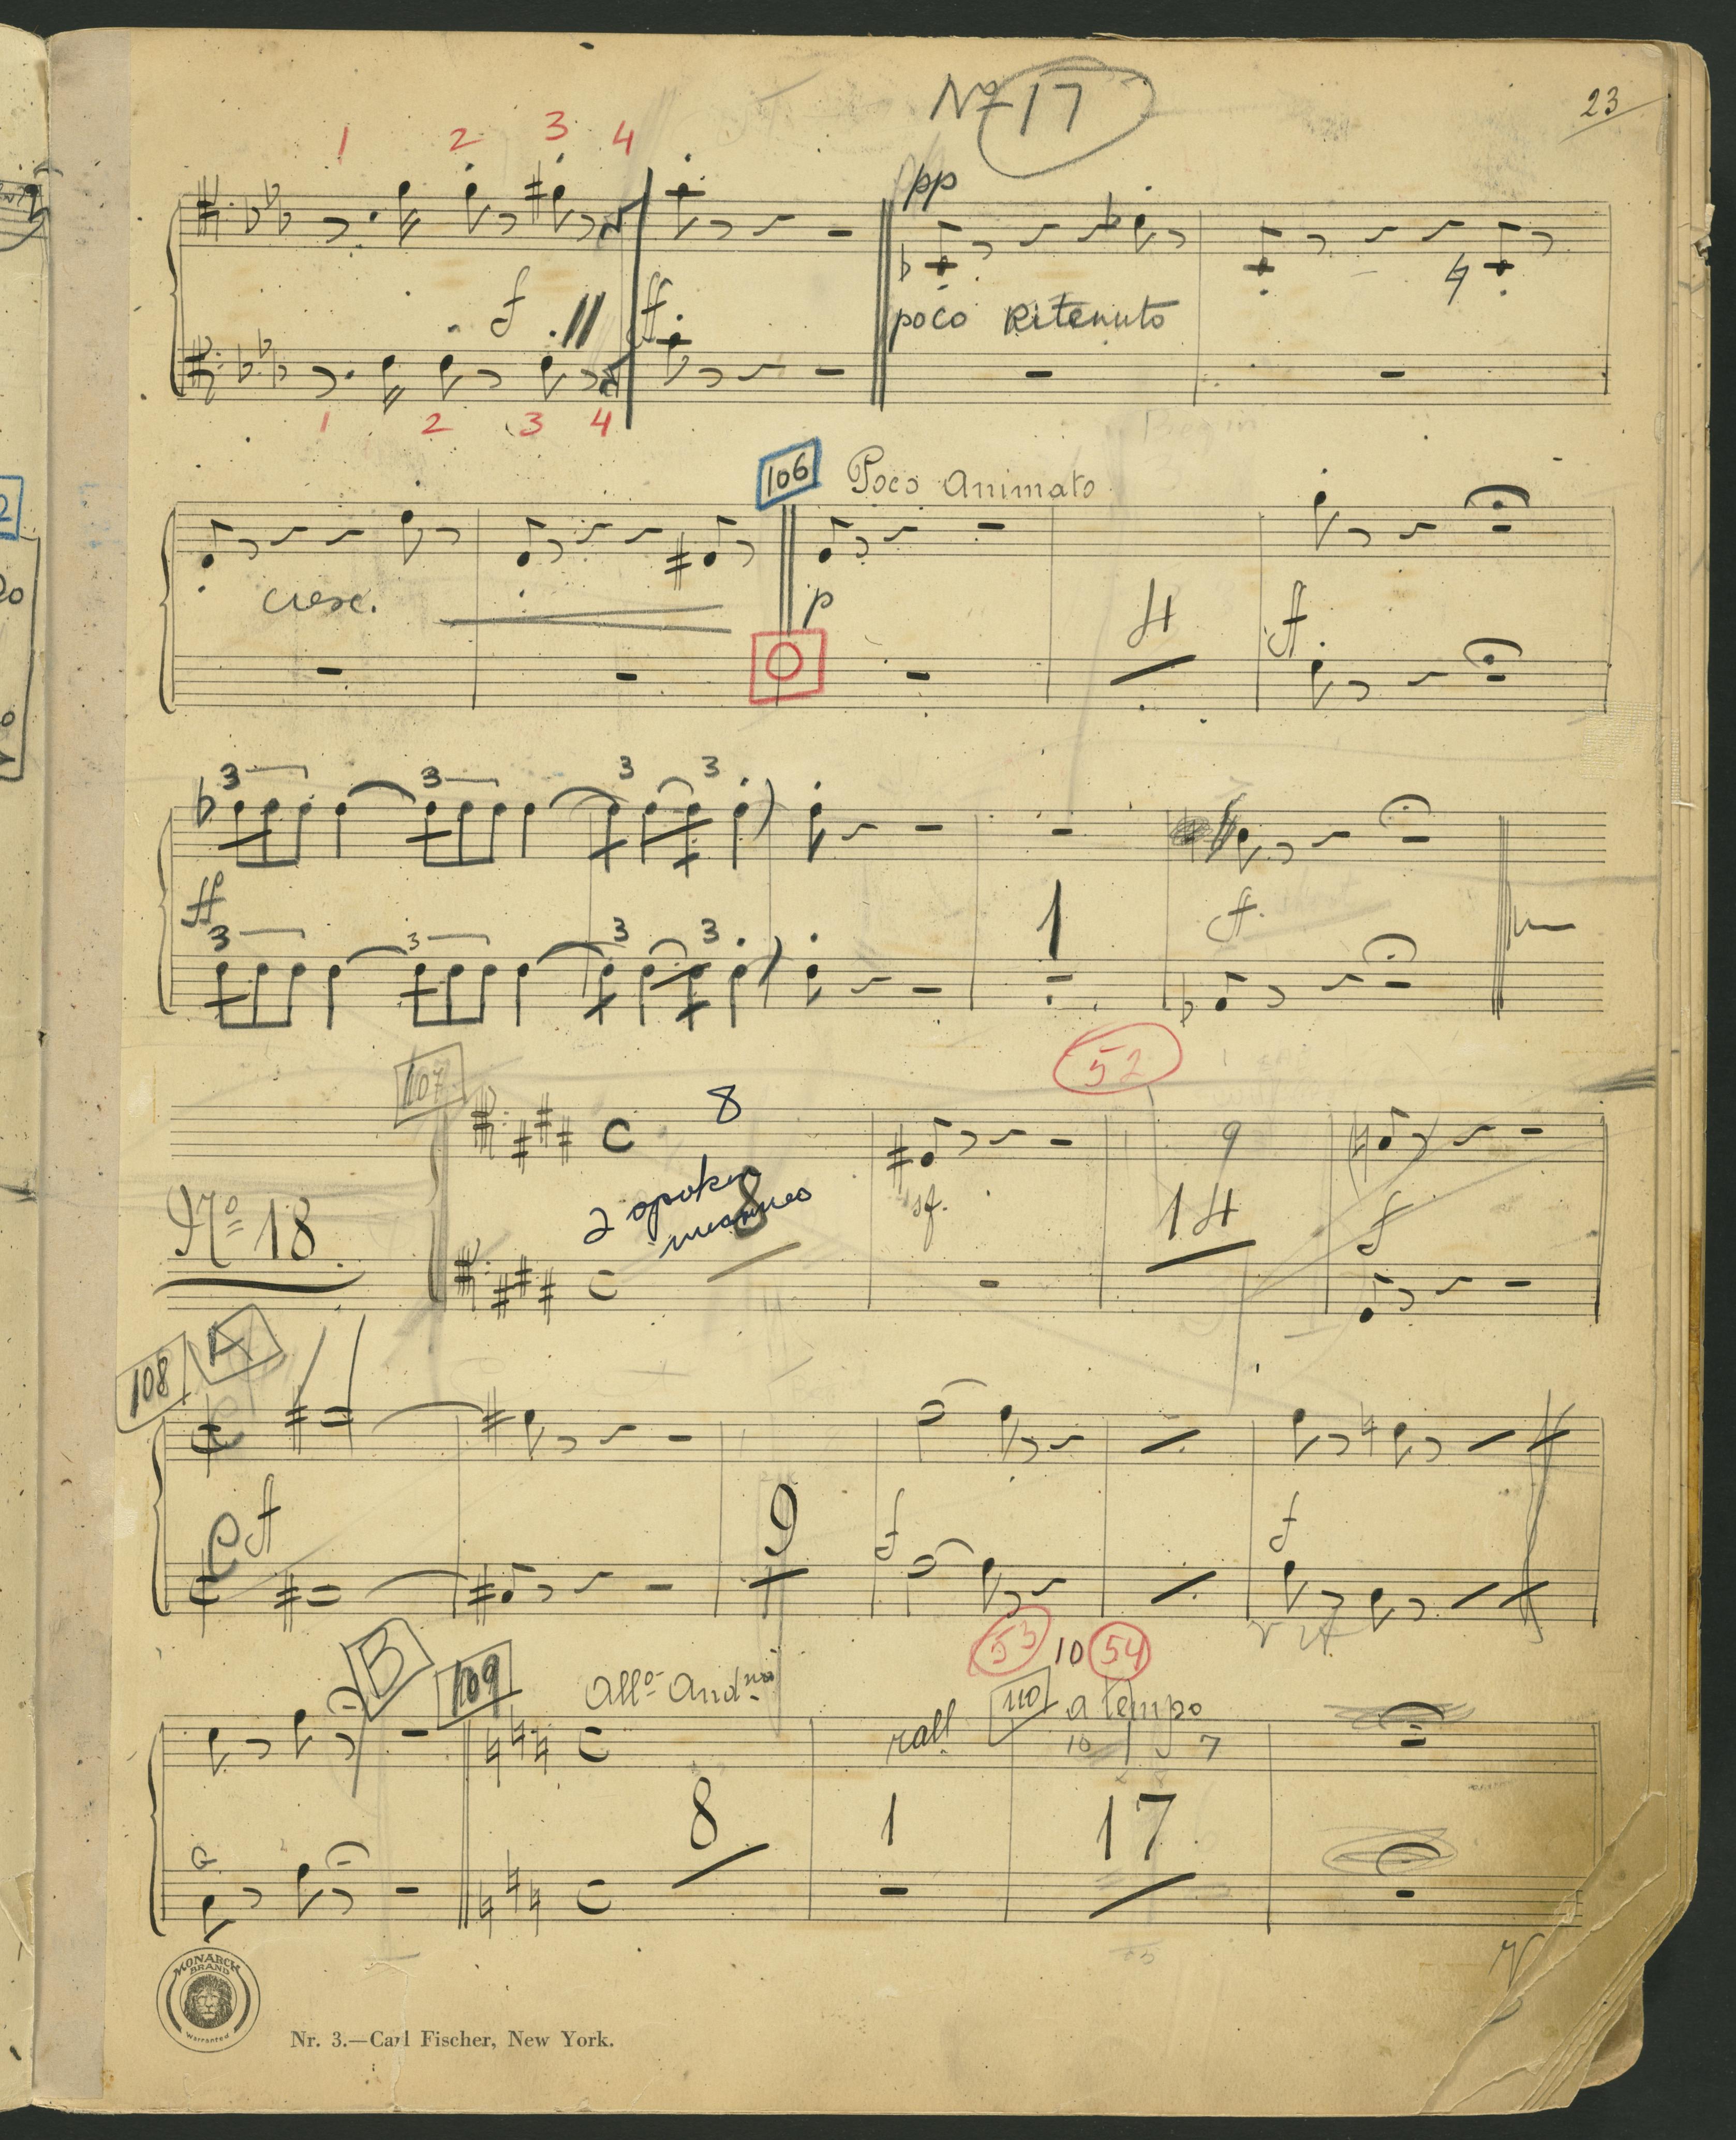 Nº 17
23
1 2 3 4
pp
f ff
poco Ritenuto
1 2 3 4
Begin
106 Poco Animato
cresc. p 4 ff
O
3 3 3 3
ff 1 ff.
3 3 3 3
52
107 8
C 9
2 spoken
measures
8 sf. 14 f
Nº 18
C
108 A
C f 9 f f
53 10 54
B 109 Allº Andⁿᵒ rall 110 a tempo
C 10 7
8 1 17
G
C
MONARCH
BRAND
Warranted
Nr. 3.—Carl Fischer, New York.